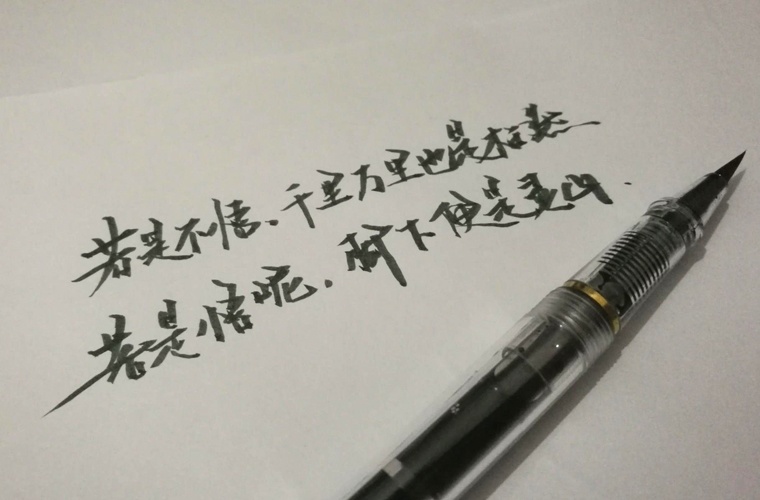 若是不悟、千里万里也是枉然
若是悟呢,脚下便是灵山.